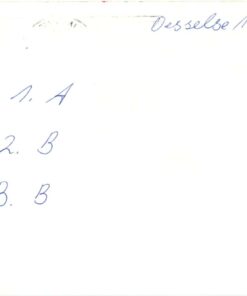 Oesselse
1. A
2. B
3. B